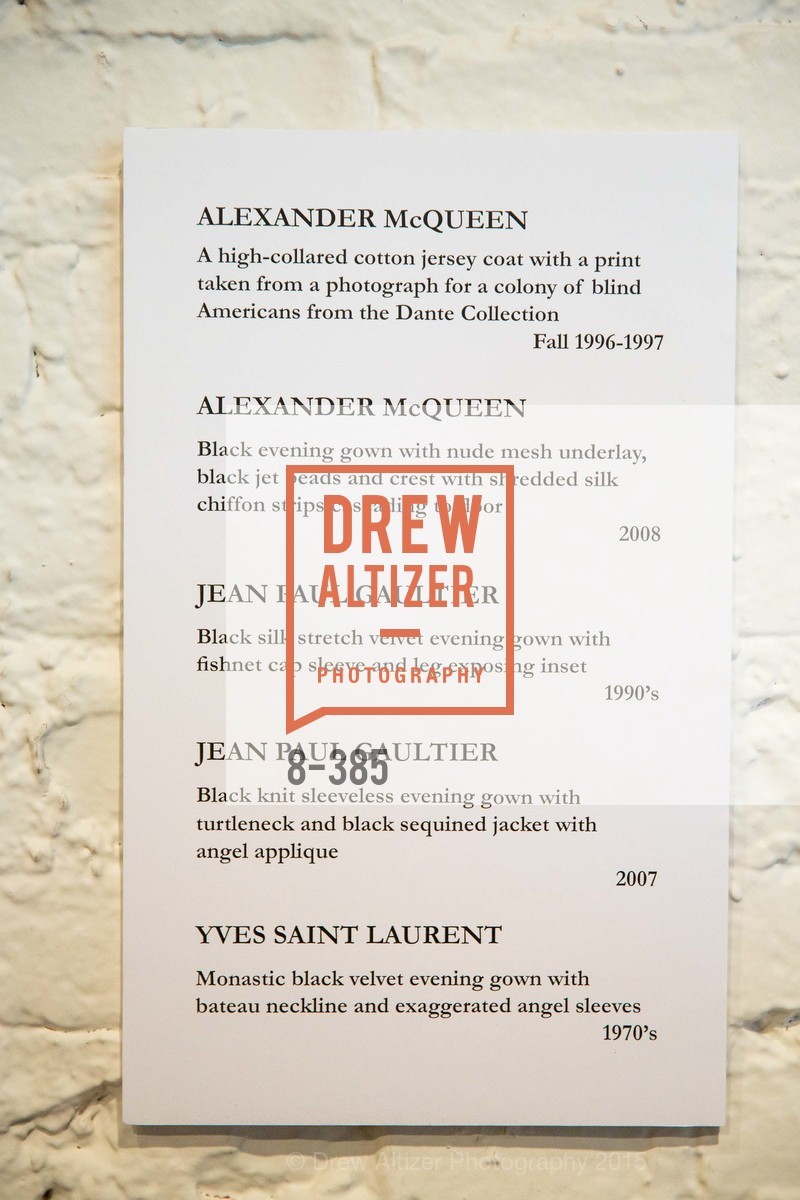 ALEXANDER McQUEEN
A high-collared cotton jersey coat with a print
taken from a photograph for a colony of blind
Americans from the Dante Collection
Fall 1996-1997
ALEXANDER McQUEEN
Black evening gown with nude mesh underlay,
black jet beads and crest with shredded silk
chiffon strips cascading to floor
2008
JEAN PAUL GAULTIER
Black silk stretch velvet evening gown with
fishnet cap sleeve and leg exposing inset
1990's
JEAN PAUL GAULTIER
Black knit sleeveless evening gown with
turtleneck and black sequined jacket with
angel applique
2007
YVES SAINT LAURENT
Monastic black velvet evening gown with
bateau neckline and exaggerated angel sleeves
1970's
DREW
ALTIZER
PHOTOGRAPHY
8-385
© Drew Altizer Photography 2015